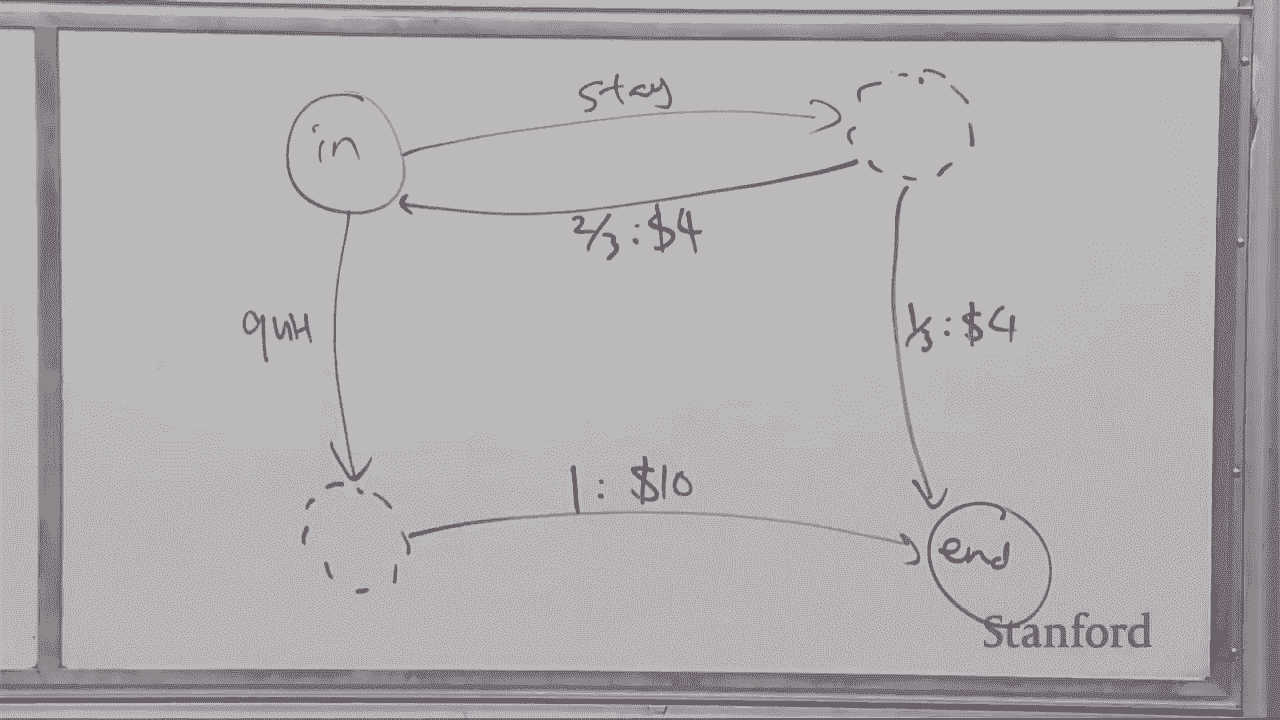 stay
in
2/3 : $4
quit
1/3 : $4
1 : $10
end
Stanford